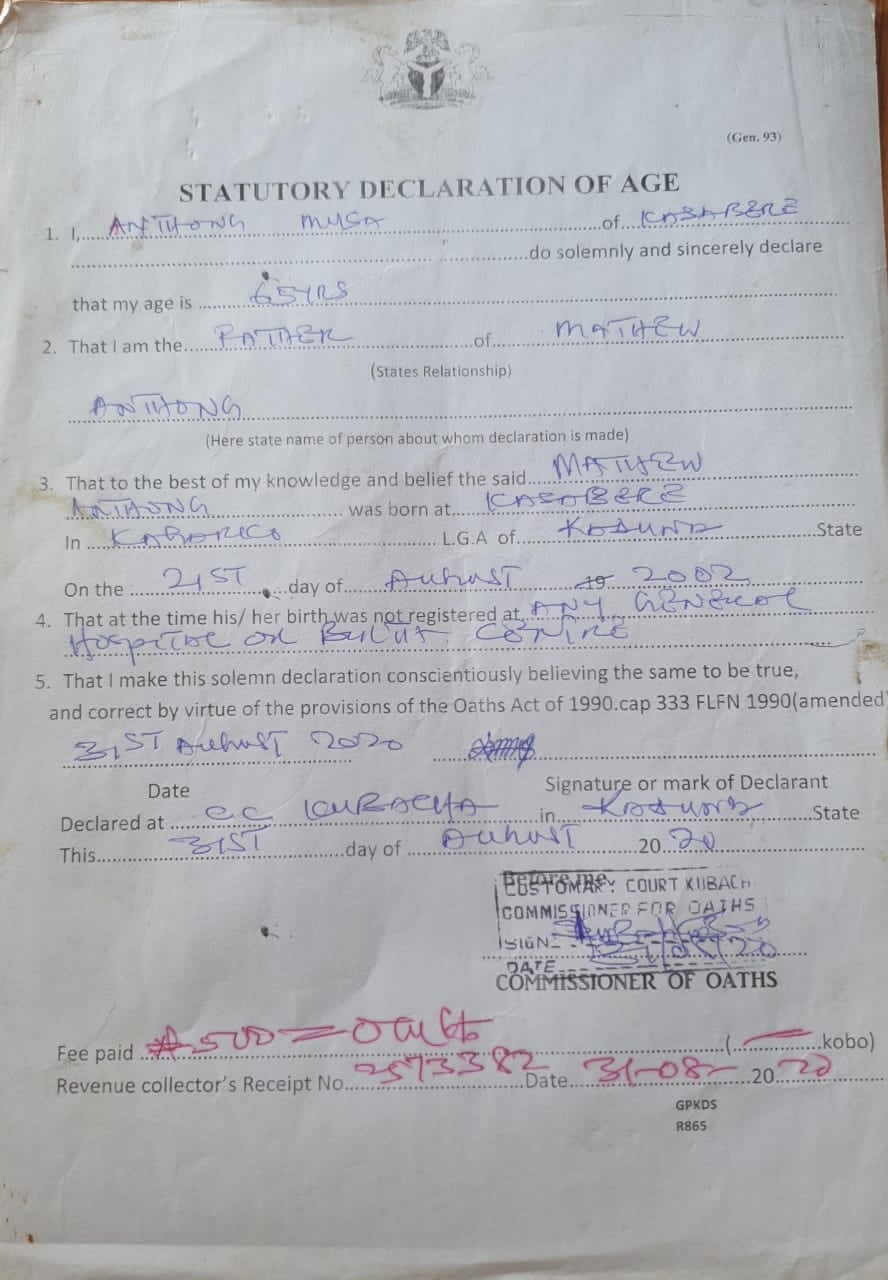 (Gen. 93)
STATUTORY DECLARATION OF AGE
1. I, ANTHONY MUSA of KASABERE
do solemnly and sincerely declare
that my age is 65YRS
2. That I am the FATHER of MATHEW
(States Relationship)
ANTHONY
(Here state name of person about whom declaration is made)
3. That to the best of my knowledge and belief the said MATHEW
ANTHONY was born at KASABERE
In L.G.A of KADUNA State
On the 21ST day of AUGUST 19 2002
4. That at the time his/ her birth was not registered at ANY GENERAL
HOSPITAL OR BIRTH CENTRE
5. That I make this solemn declaration conscientiously believing the same to be true,
and correct by virtue of the provisions of the Oaths Act of 1990.cap 333 FLFN 1990(amended)
31ST AUGUST 2020
Date Signature or mark of Declarant
Declared at CC KUBACHA in KADUNA State
This 31ST day of AUGUST 2020
Before me
CUSTOMARY COURT KUBACH
COMMISSIONER FOR OATHS
SIGN
DATE 31/08/20
COMMISSIONER OF OATHS
Fee paid ₦500=only (— kobo)
Revenue collector's Receipt No. 2573382 Date 31-08-2020
GPKDS
R865